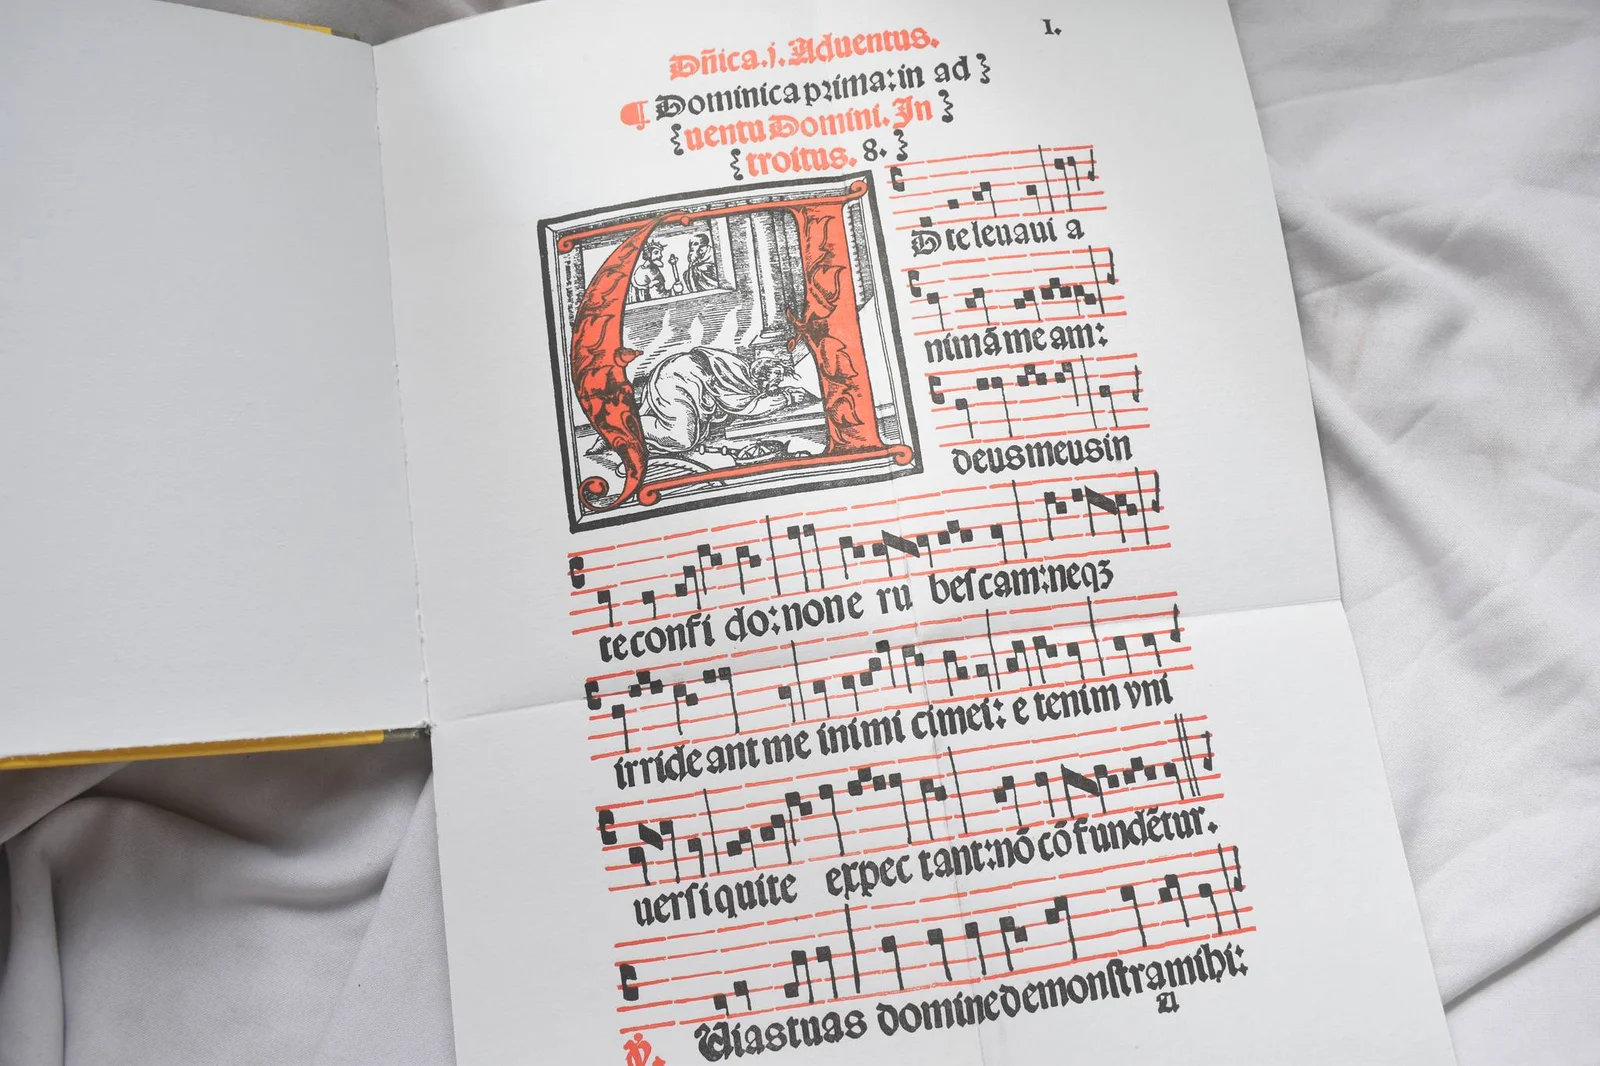 I.
Dñica.j. Aduentus.
¶ Dominica prima: in ad
uentu Domini. In
troitus. 8.
A
D te leuaui a
nimã meam:
deus meus in
te confi do: non e ru bescam: neqꝫ
irride ant me inimi ci mei: e tenim vni
uersi qui te expec tant: nõ cõ fundẽtur.
℣. Uias tuas domine demonstra mihi: